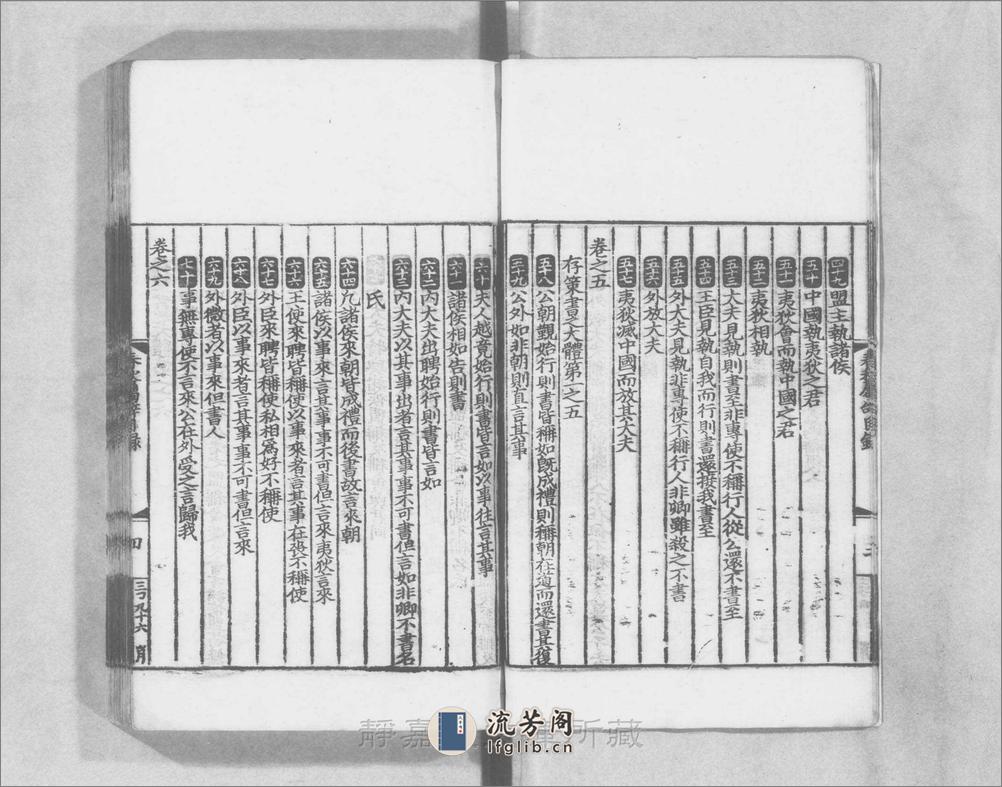 四十九 盟主執諸侯
五十 中國執夷狄之君
五十一 夷狄會而執中國之君
五十二 夷狄相執
五十三 大夫見執則書至非專使不稱行人從公還不書至
五十四 王臣見執自我而行則書還接我書至
五十五 外大夫見執非專使不稱行人非卿雖殺之不書
五十六 外放大夫
五十七 夷狄滅中國而放其大夫
卷之五
存策書之大體第一之五
五十八 公朝覲始行則書皆稱如旣成禮則稱朝在道而還書其復
五十九 公外如非朝則直言其事
六十 夫人越竟始行則書皆言如以事往言其事
六十一 諸侯相如告則書
六十二 內大夫出聘始行則書皆言如
六十三 內大夫以其事出者言其事事不可書但言如非卿不書名
氏
六十四 凡諸侯來朝皆成禮而後書故言來朝
六十五 諸侯以事來言其事事不可書但言來夷狄言來
六十六 王使來聘皆稱使以事來者言其事在喪不稱使
六十七 外臣來聘皆稱使私相爲好不稱使
六十八 外臣以事來者言其事事不可書但言來
六十九 外微者以事來但書人
七十 事無專使不言來公在外受之言歸我
卷之六
四
流芳阁
lfglib.cn
靜嘉
所藏